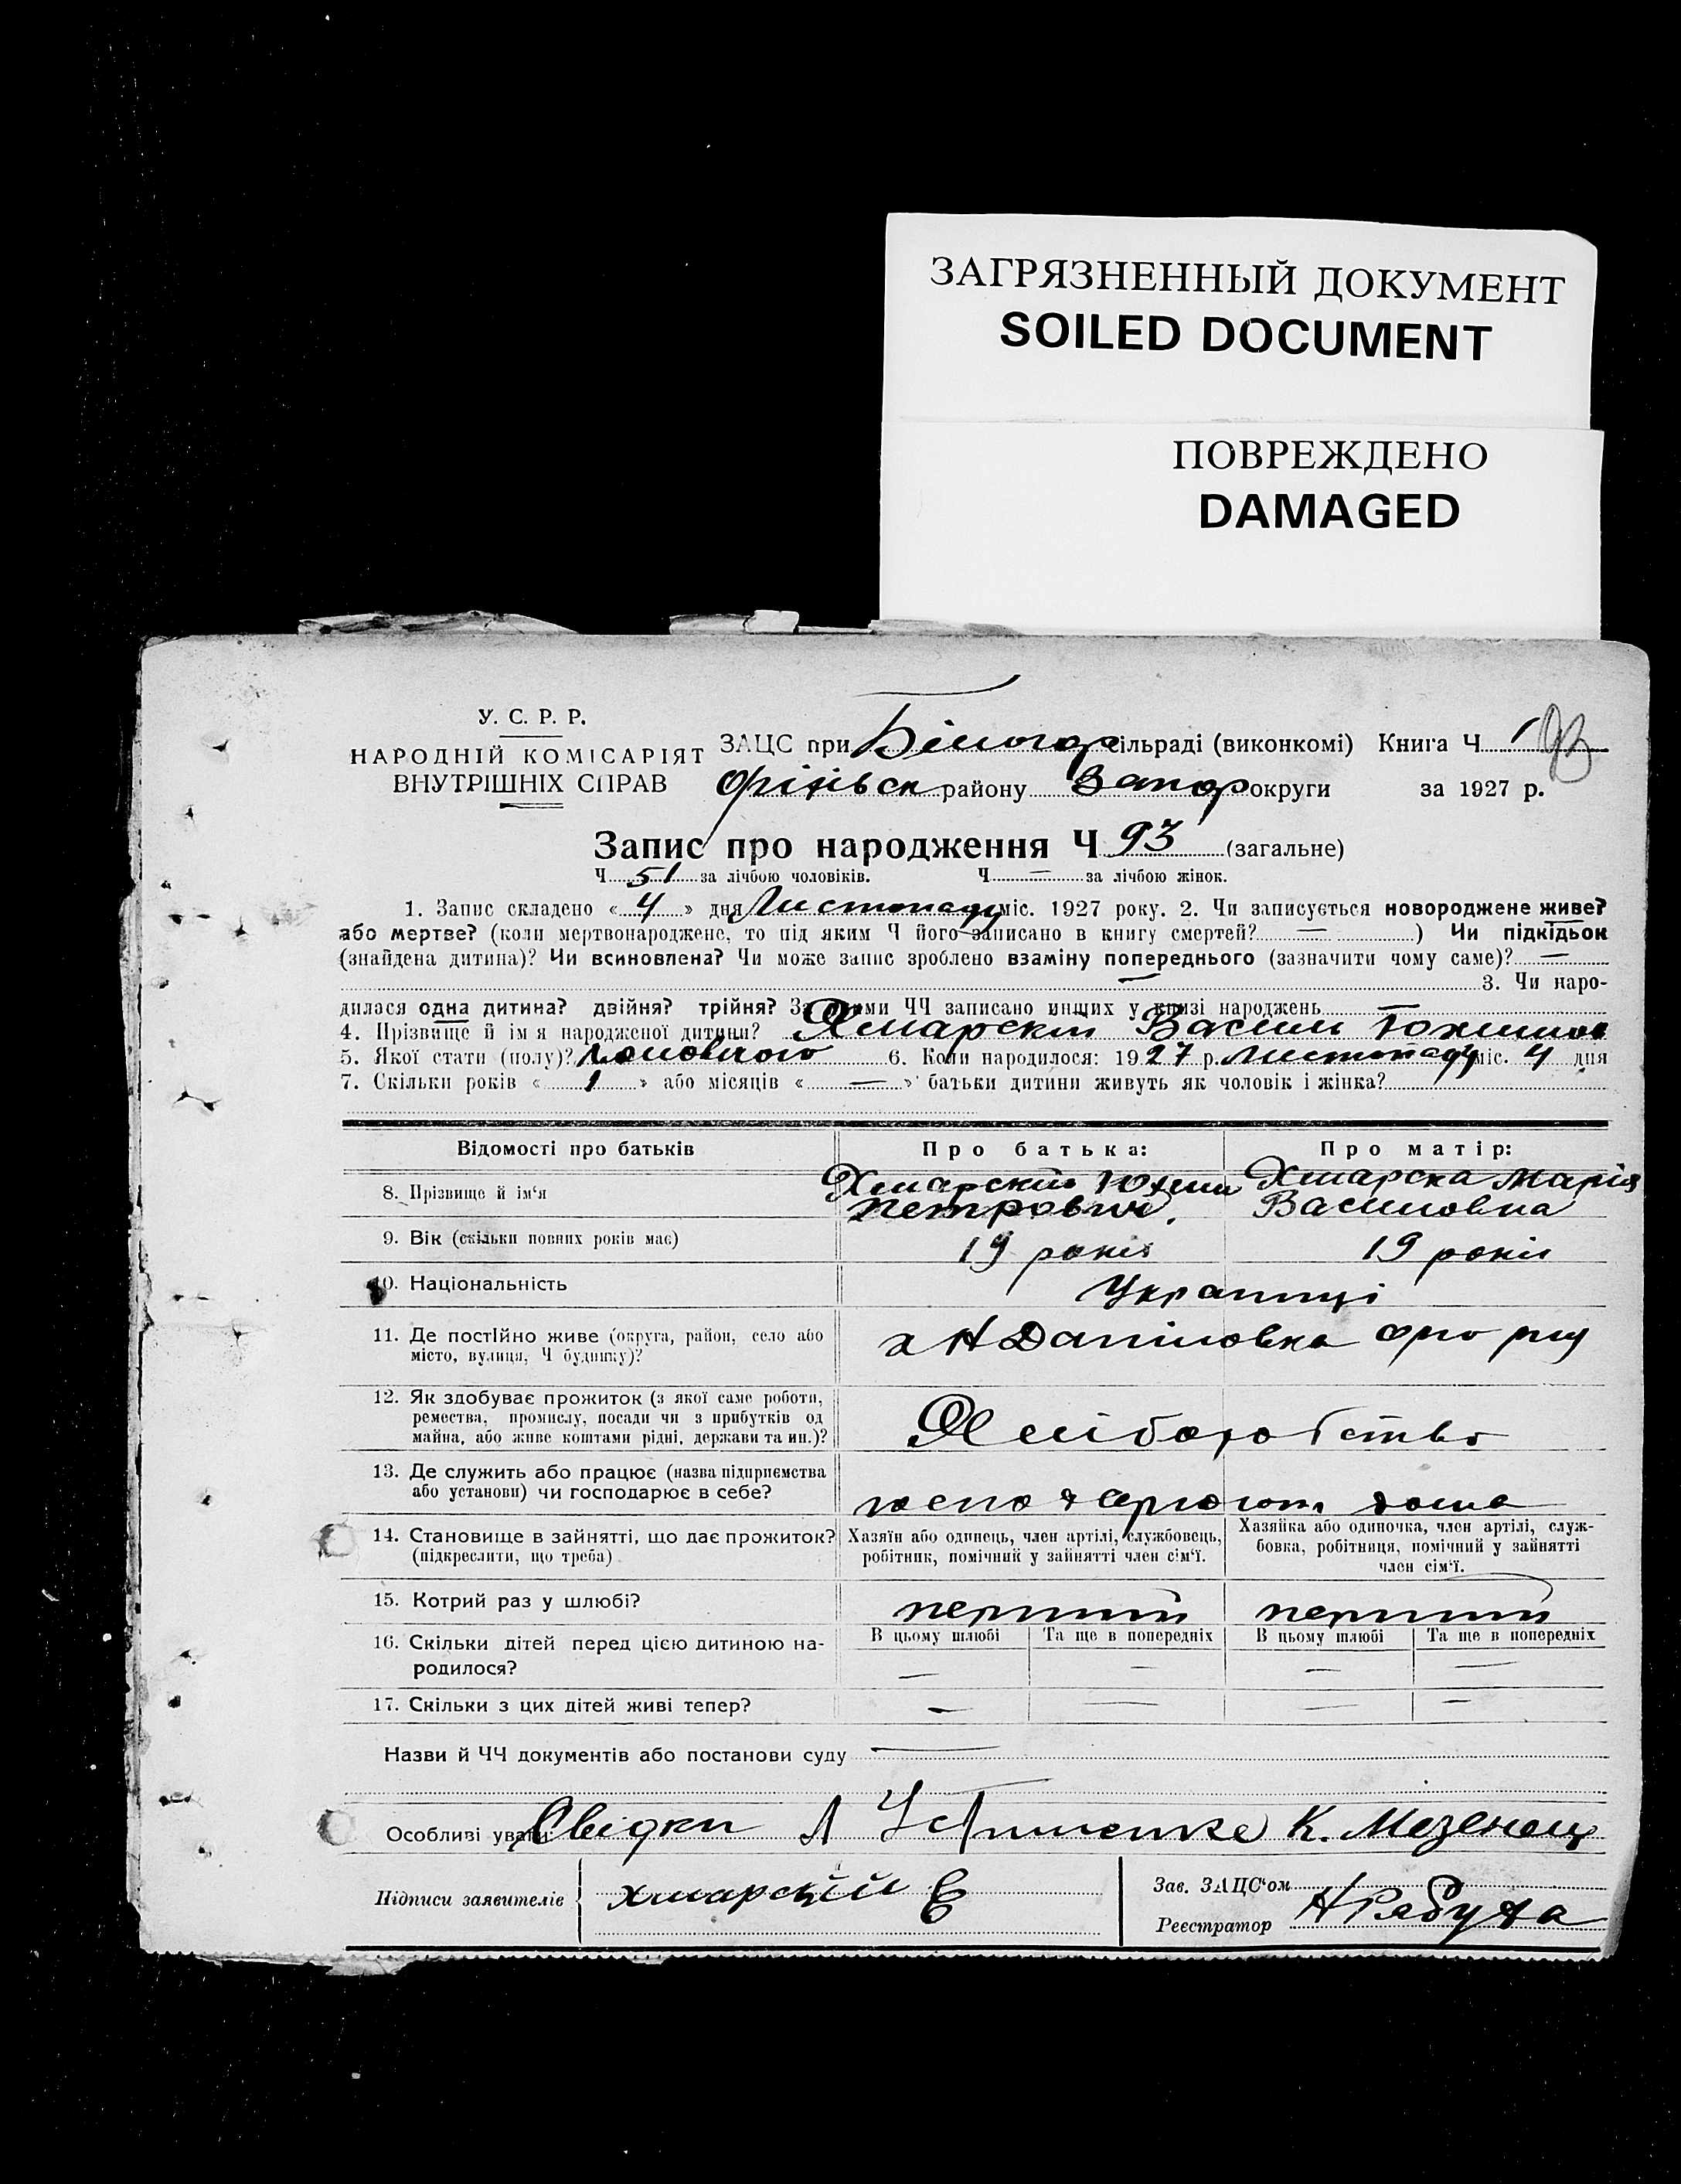 ЗАГРЯЗНЕННЫЙ ДОКУМЕНТ
SOILED DOCUMENT
ПОВРЕЖДЕНО
DAMAGED
У. С. Р. Р.
НАРОДНІЙ КОМІСАРІЯТ
ВНУТРІШНІХ СПРАВ
ЗАЦС при Білогор сільраді (виконкомі) Книга Ч 1 93
Оріхівськ району Запор округи за 1927 р.
Запис про народження Ч 93 (загальне)
Ч 51 за лічбою чоловіків. Ч — за лічбою жінок.
1. Запис складено « 4 » дня Листопаду міс. 1927 року. 2. Чи записується новороджене живе?
або мертве? (коли мертвонароджене, то під яким Ч його записано в книгу смертей? — ) Чи підкідьок
(знайдена дитина)? Чи всиновлена? Чи може запис зроблено взаміну попереднього (зазначити чому саме)? —
— 3. Чи наро-
дилася одна дитина? двійня? трійня? За якими ЧЧ записано инших у книзі народжень
4. Прізвище й ім'я народженої дитини? Хмарский Василь Юхимов
5. Якої стати (полу)? чоловічого 6. Коли народилося: 1927 р. Листопаду міс. 4 дня
7. Скільки років « 1 » або місяців « — » батьки дитини живуть як чоловік і жінка?
Відомості про батьків Про батька: Про матір:
8. Прізвище й ім'я Хмарский Юхим Хмарска Мария
Петрович. Василовна
9. Вік (скільки повних років має) 19 років 19 років
10. Національність Українці
11. Де постійно живе (округа, район, село або
місто, вулиця, Ч будинку)? х Н Даніловка
12. Як здобуває прожиток (з якої саме роботи,
ремества, промислу, посади чи з прибутків од
майна, або живе коштами рідні, держави та ин.)? Хліборобство
13. Де служить або працює (назва підприємства
або установи) чи господарює в себе? господарюють дома
14. Становище в зайнятті, що дає прожиток?
(підкреслити, що треба)
Хазяїн або одинець, член артілі, службовець,
робітник, помічний у зайнятті член сім'ї.
Хазяйка або одиночка, член артілі, служ-
бовка, робітниця, помічний у зайнятті
член сім'ї.
15. Котрий раз у шлюбі? перший перший
16. Скільки дітей перед цією дитиною на-
родилося?
В цьому шлюбі Та ще в попередніх В цьому шлюбі Та ще в попередніх
— — — —
17. Скільки з цих дітей живі тепер? — — — —
Назви й ЧЧ документів або постанови суду —
Особливі уваги: Свідки К. Мезенец
Підписи заявителів хмарский Е
Зав. ЗАЦС'ом
Реєстратор Н Рябуха